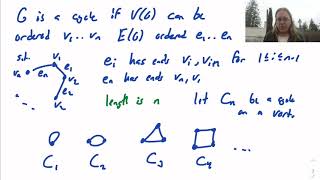 G is a cycle if V(G) can be
ordered v₁...vₙ E(G) ordered e₁...eₙ
s.t. eᵢ has ends vᵢ,vᵢ₊₁ for 1≤i≤n-1
eₙ has ends vₙ,v₁
v₁ e₁ v₂ e₂ vₙ eₙ
length is n let Cₙ be a cycle
on n verts.
C₁ C₂ C₃ C₄ ...